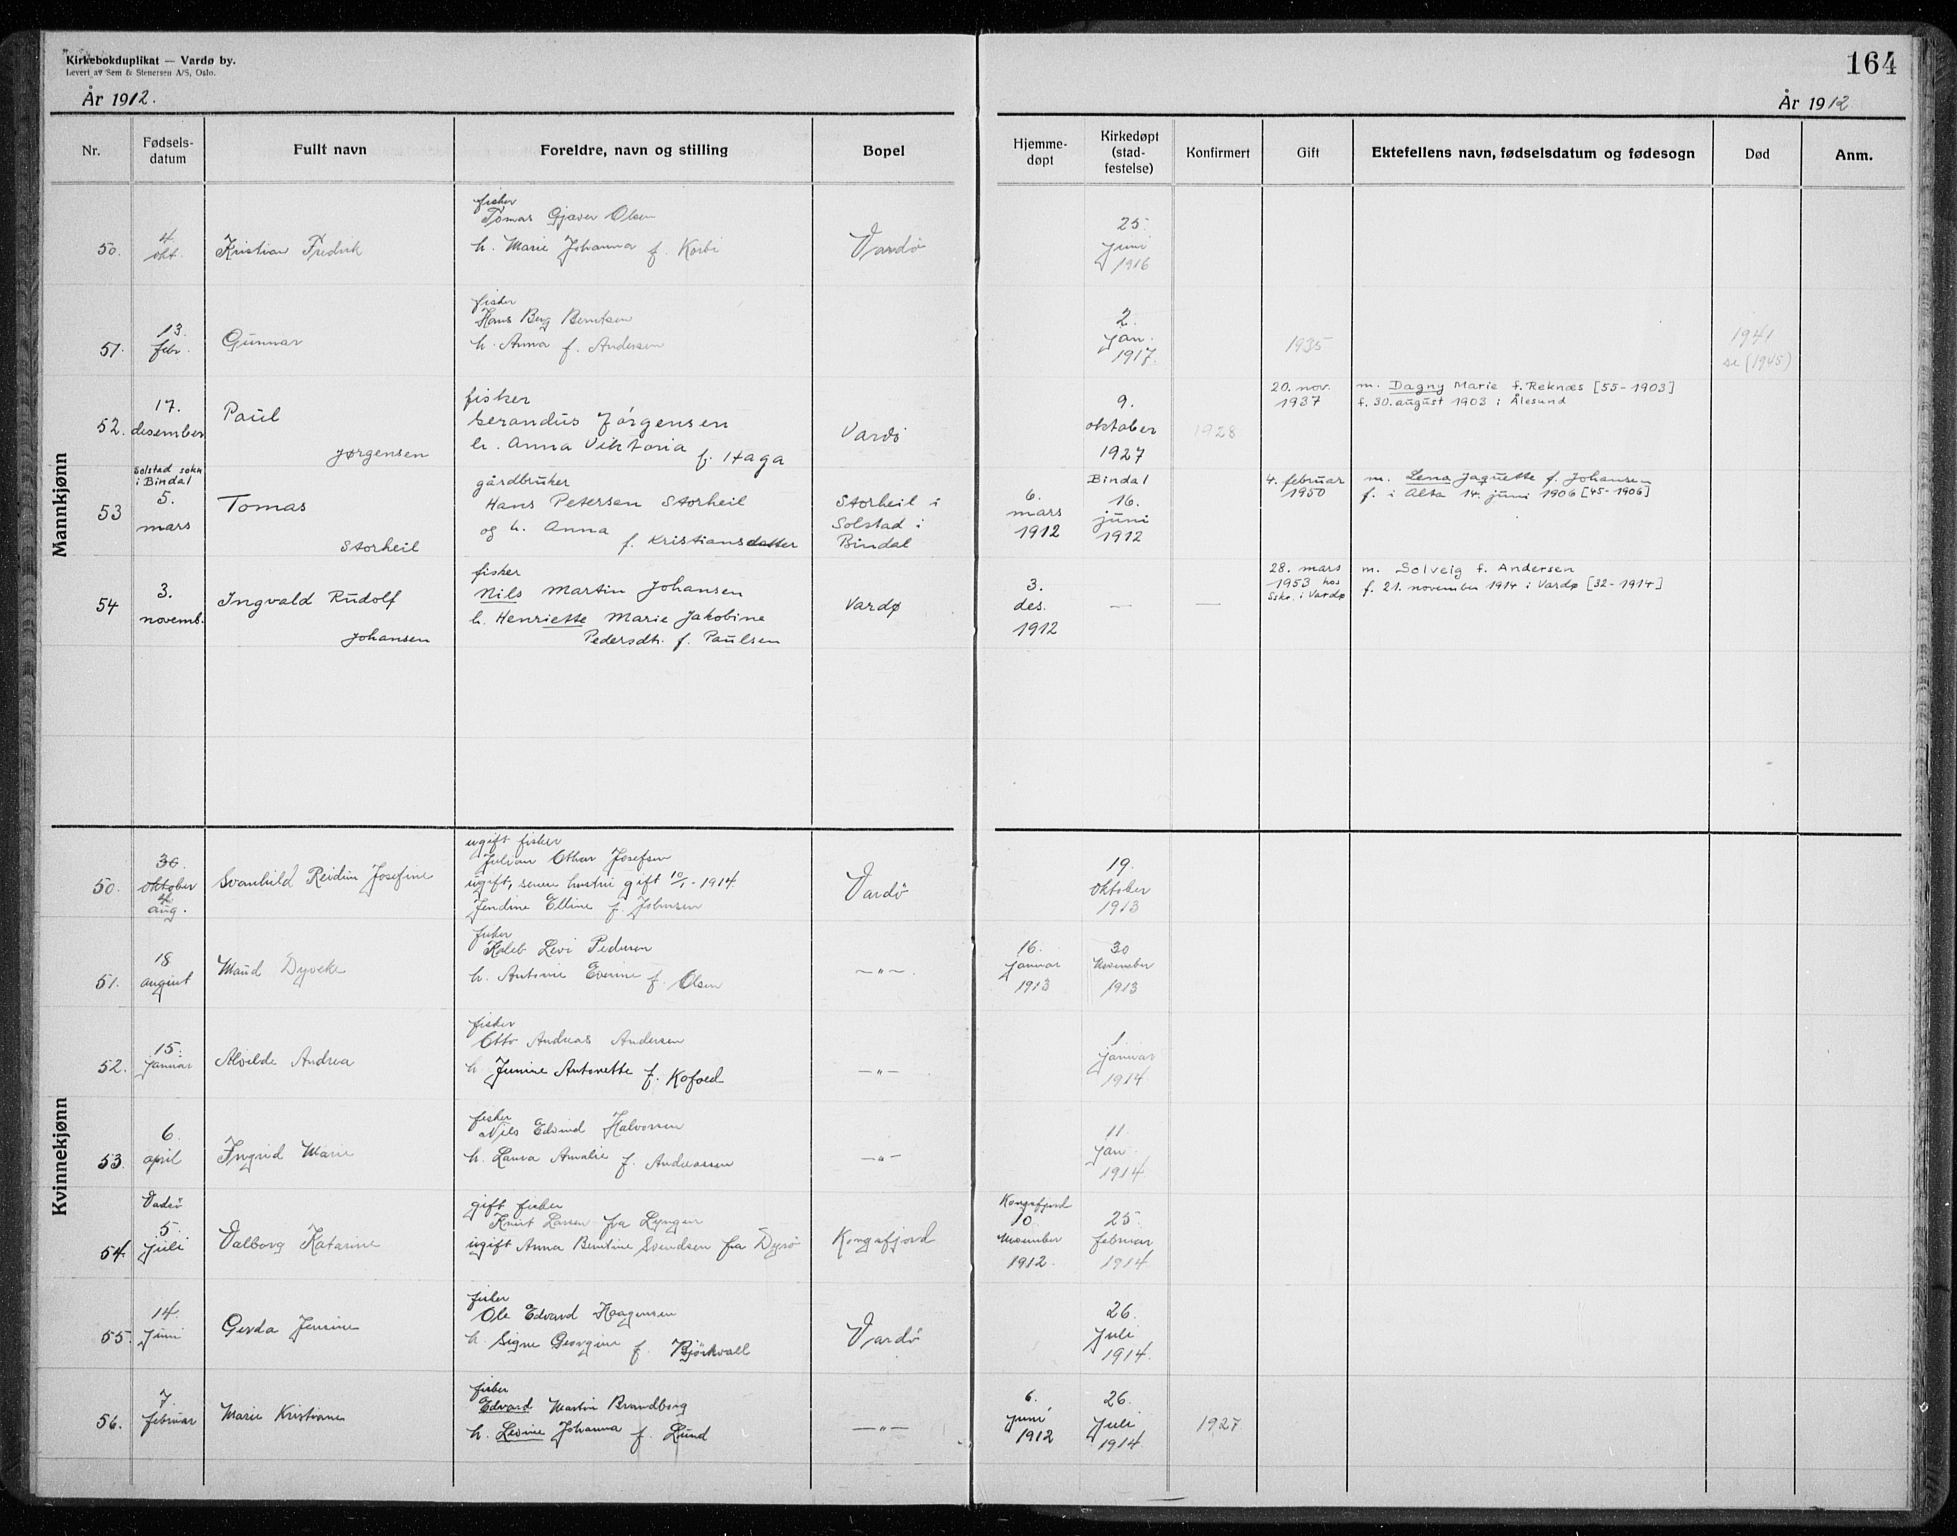 Kirkebokduplikat — Vardø by.
Levert av Sem & Stenersen A/S, Oslo.
164
År 1912.
År 1912
Nr.
Fødsels-
datum
Fullt navn
Foreldre, navn og stilling
Bopel
Hjemme-
døpt
Kirkedøpt
(stad-
festelse)
Konfirmert
Gift
Ektefellens navn, fødselsdatum og fødesogn
Død
Anm.
Mannkjønn
50.
4.
okt.
Kristian Fredrik
fisker
Tomas Gjæver Olsen
h. Marie Johanna f. Korbi
Vardø
25.
Juni
1916
51.
13.
febr.
Gunnar
fisker
Hans Berg Berntsen
h. Anna f. Andersen
2.
Jan.
1917.
1935
1941
se (1945)
52.
17.
desember
Paul
Jørgensen
fisker
Gerandus Jørgensen
h. Anna Viktoria f. Haga
Vardö
9.
oktober
1927
1928
20. nov.
1937
m. Dagny Marie f. Reknæs [55-1903]
f. 30. august 1903 i Ålesund
53
Solstad sokn
i Bindal
5.
mars
Tomas
Storheil
gårdbruker
Hans Petersen Storheil
og h. Anna
f. Kristiansdatter
Storheil i
Solstad i
Bindal
6.
mars
1912
Bindal
16.
juni
1912
4. februar
1950
m. Lena Jaquette f. Johansen
f. i Alta 14. juni 1906 [45-1906]
54
3.
novemb.
Ingvald Rudolf
Johansen
fisker
Nils Martin Johansen
h. Henriette Marie Jakobine
Pedersdtr. f. Paulsen
Vardø
3.
des.
1912
—
—
28. mars
1953 hos
Sskr. i Vardø
m. Solveig f. Andersen
f. 21. november 1914 i Vardø [32-1914]
Kvinnekjønn
50.
30.
oktober
4.
aug.
Svanhild Reidun Josefine
ugift fisker
Julian Othar Josefsen
ugift, senere hustru gift 10/1-1914.
Jendine Elline f. Johnsen
Vardø
19.
Oktober
1913
51.
18
august
Maud Dyveke
fisker
Kaleb Levi Pedersen
h. Antonie Everine f. Olsen
—„—.
16.
Januar
1913
30
November
1913
52.
15.
Januar
Alvilde Andrea
fisker
Otto Andreas Andersen
h Jenine Antonette f. Kofoed
—„—
1.
Januar
1914
53.
6.
april
Ingrid Marie
fisker
Nils Edvind Halvorsen
h. Laura Amalie f. Andreassen
—„—
11.
Jan.
1914
54.
Vadsø
5.
Juli
Valborg Katarine
gift fisker
Knut Larsen fra Lyngen
ugift Anna Berntine Svendsen fra Dyrö
Kongsfjord
Kongsfjord
10.
November
1912.
25.
februar
1914.
55.
14.
Juni
Gerda Jensine
fisker
Ole Edvard Haagensen
h. Signe Georgine f. Björkvall
Vardö
26.
Juli
1914.
56.
7.
februar
Marie Kristiane
fisker
Edvard Martin Brandborg
h. Levine Johanna f. Lund
—„—
6.
Juni
1912
26.
Juli
1914
1927